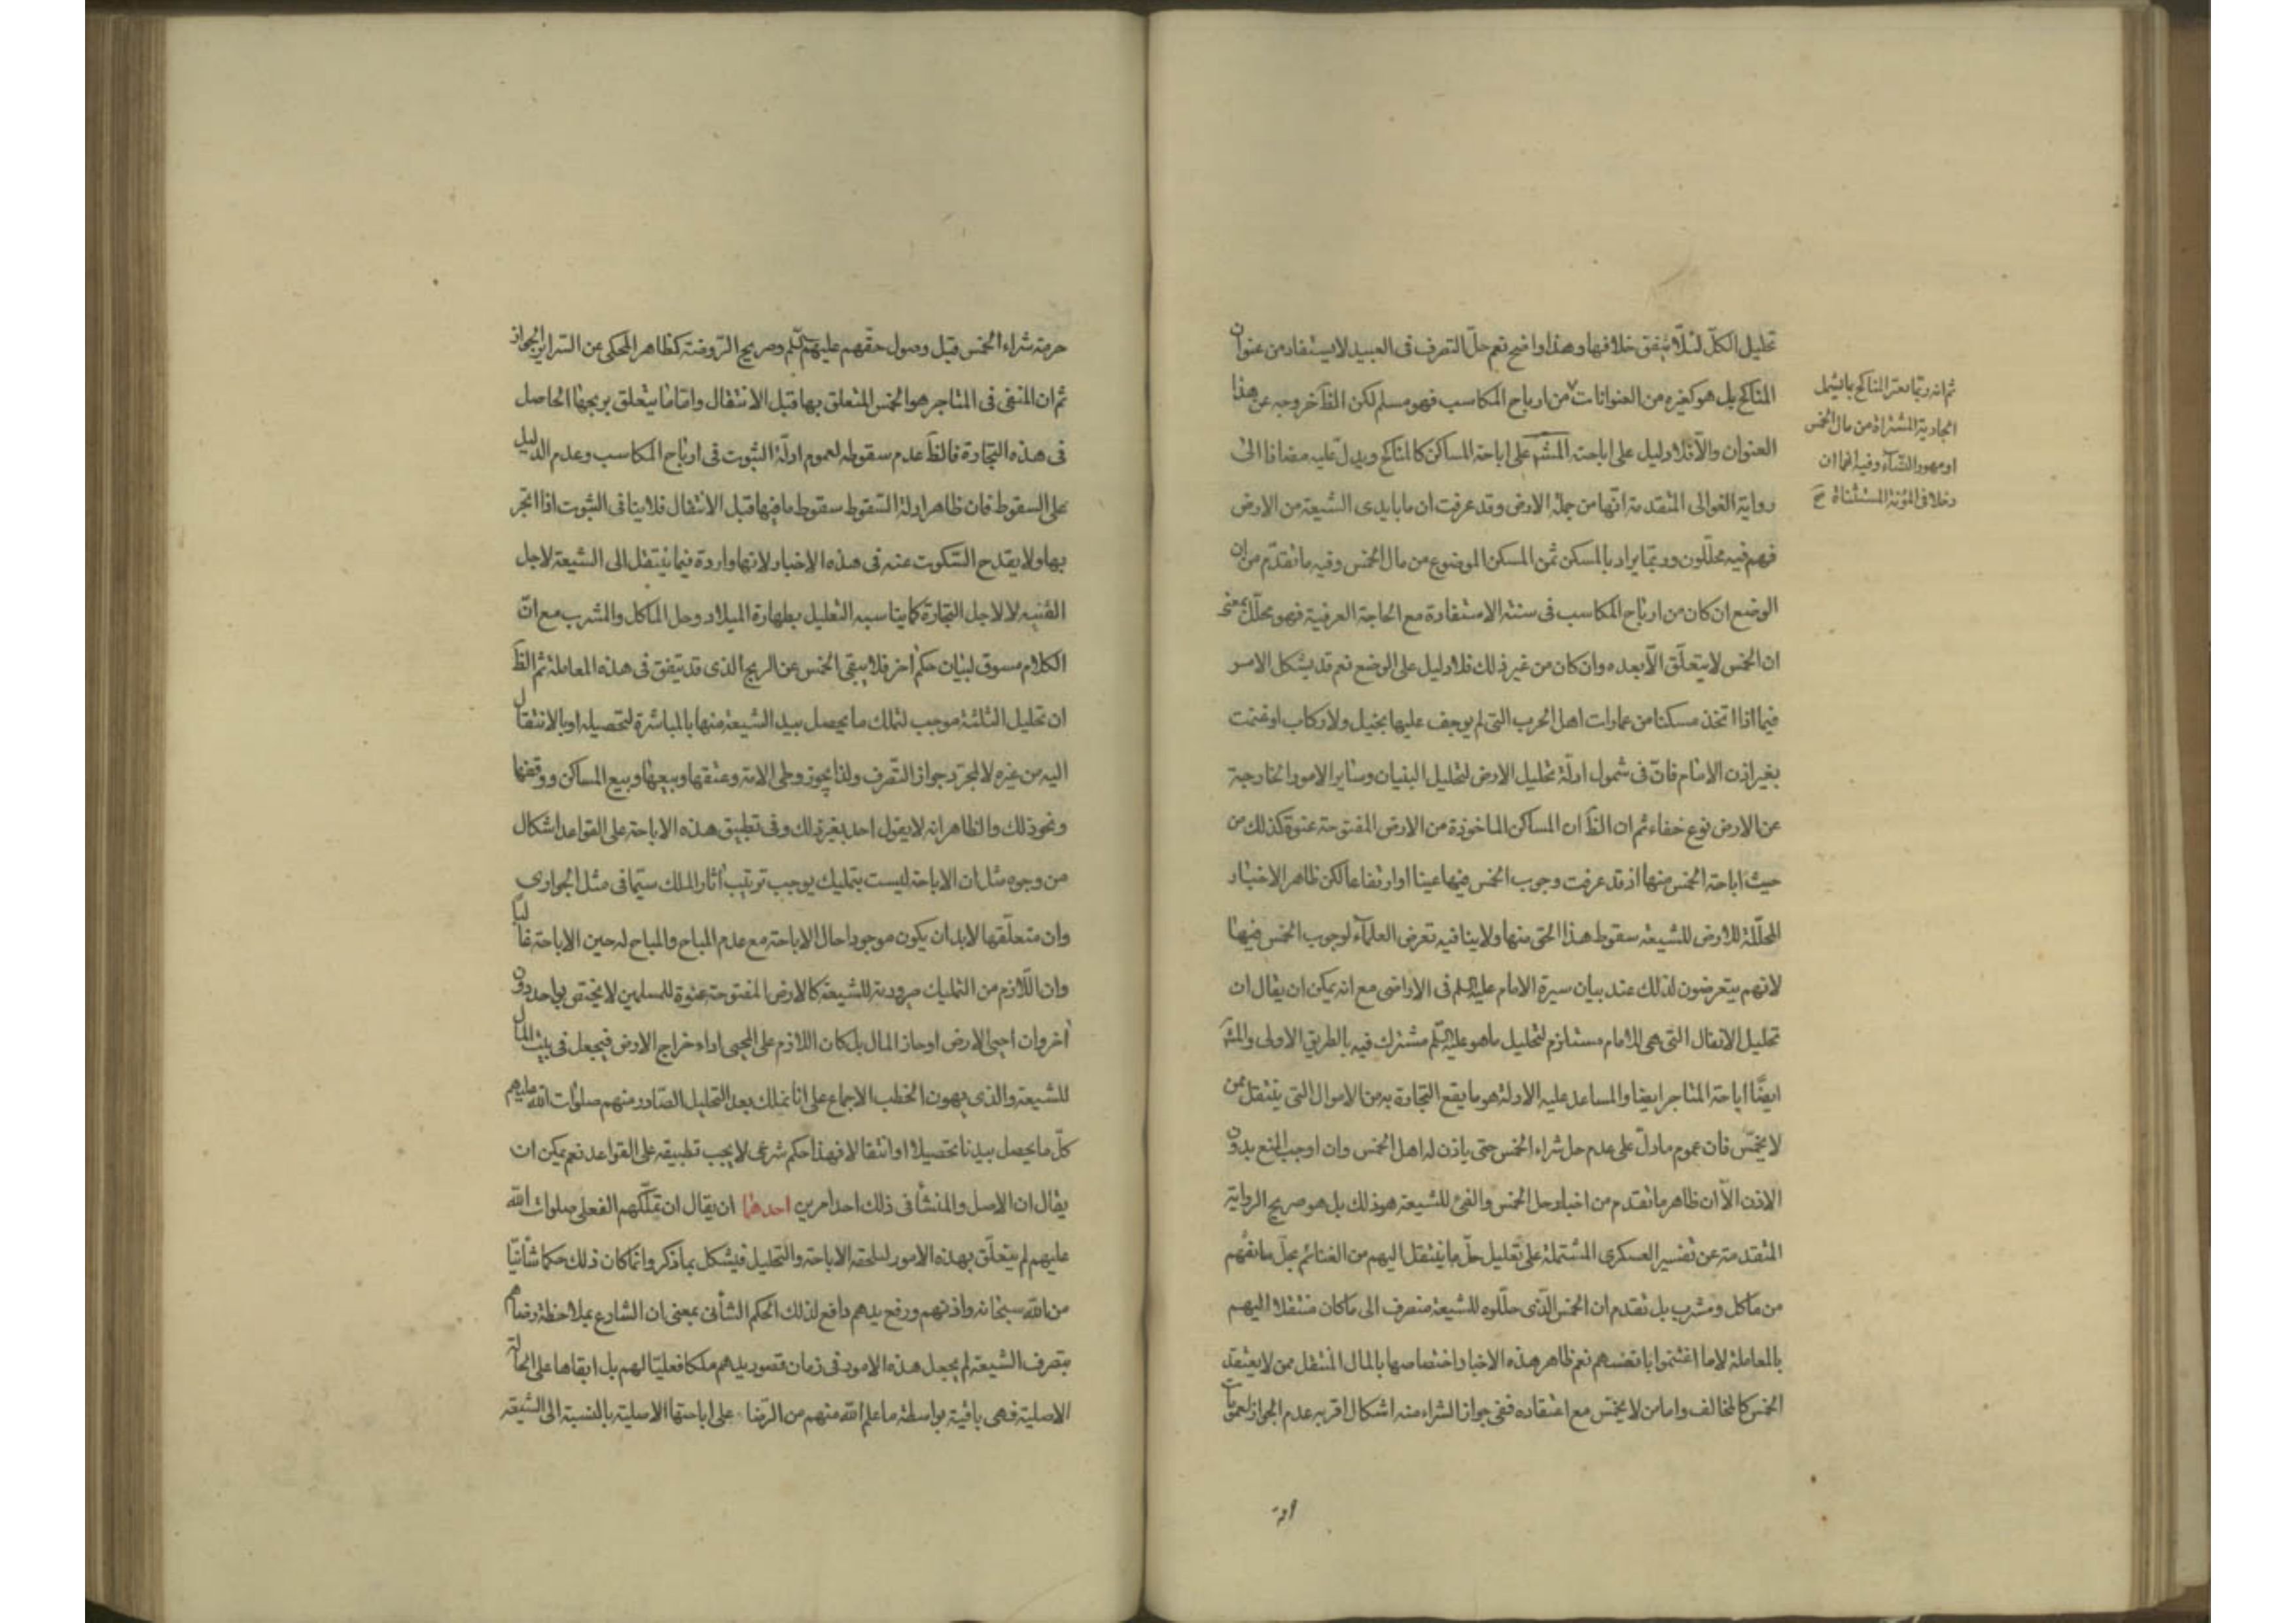 تحليل الكلّ لئلّا يتفق خلافها وهذا واضح نعم حلّ التصرف فى العبيد لا يستفاد من عنوان
المناكح بل هو كغيره من العنوانات من ارباح المكاسب فهو مسلم لكن الظّ خروجه عن هذا
العنوان والّا فلا دليل على اباحته المشهّ على اباحة المساكن كالمناكح ويدلّ عليه مضافا الى
رواية الغوالى المتقدمة انّها من جملة الارض وقد عرفت ان ما بايدى الشيعة من الارض
فهم فيه محلّلون وربّما يراد بالمسكن ثمن المسكن الموضوع من مال الخمس وفيه ما تقدّم من ان
الوضع ان كان من ارباح المكاسب فى سنة الاستفادة مع الحاجة العرفية فهو محلّل بمعنى
ان الخمس لا يتعلّق الّا بعده وان كان من غير ذلك فلا دليل على الوضع نعم قد يشكل الامر
فيما اذا اتخذ مسكنا من عمارات اهل الحرب التى لم يوجف عليها بخيل ولا ركاب او غنمت
بغير اذن الامام فانّ فى شمول ادلّة تحليل الارض لتحليل البنيان وساير الامور الخارجية
عن الارض نوع خفاء ثم ان الظّ ان المساكن الماخوذة من الارض المفتوحة عنوة كذلك من
حيث اباحة الخمس منها اذ قد عرفت وجوب الخمس فيها عينا او ارتفاعا لكن ظاهر الاخبار
المحلّلة للارض للشيعة سقوط هذا الحق منها ولا ينافيه تعرض العلمآء لوجوب الخمس فيها
لانهم يتعرضون لذلك عند بيان سيرة الامام عليه السلم فى الاراضى مع انه يمكن ان يقال ان
تحليل الانفال التى هى للامام مستلزم لتحليل ما هو عليه السّلم مشترك فيه بالطريق الاولى والمشهّ
ايضًا اباحة المتاجر ايضا والمساعد عليه الادلة هو ما يقع التجارة به من الاموال التى ينتقل ممن
لا يخمّس فان عموم ما دلّ على عدم حل شراء الخمس حتى ياذن له اهل الخمس وان اوجب المنع بدون
الاذن الّا ان ظاهر ما تقدم من اخبار حل الخمس والفئ للشيعة هو ذلك بل هو صريح الرواية
المتقدمة عن تفسير العسكرى المشتملة على تعليل حلّ ما ينتقل اليهم من الغنائم بحلّ منافعهم
من ماكل ومشرب بل تقدم ان الخمس الّذى حلّلوه للشيعة منصرف الى ما كان منتقلا اليهم
بالمعاملة لا ما اغتنموا بانفسهم نعم ظاهر هذه الاخبار اختصاصها بالمال المنتقل ممن لا يعتقد
الخمس كالمخالف واما من لا يخمّس مع اعتقاده ففى جواز الشراء منه اشكال اقربه عدم الجواز لعمومات
ثم انه ربّما يفسّر المناكح بما يشمل
الجارية المشتراة من مال الخمس
او مهور النسآء وفيه انهما ان
دخلا فى المؤنة المستثناة صح
حرمة شراء الخمس قبل وصول حقّهم عليهم السّلم وصريح الرّوضة كظاهر المحكى عن السّراير الجواز
ثم ان المنفى فى المتاجر هو الخمس المتعلق بها قبل الانتقال وامّا ما يتعلق بربحها الحاصل
فى هذه التجارة فالظّ عدم سقوطه لعموم ادلّة الثبوت فى ارباح المكاسب وعدم الدليل
على السقوط فان ظاهر ادلة السّقوط سقوط ما فيها قبل الانتقال فلا ينافى الثبوت اذا اتّجر
بها ولا يقدح السّكوت عنه فى هذه الاخبار لانها واردة فيما ينتقل الى الشيعة لاجل
القنية لا لاجل التجارة كما يناسبه التعليل بطهارة الميلاد وحل الماكل والمشرب مع انّ
الكلام مسوق لبيان حكم آخر فلا يبقى الخمس عن الربح الذى قد يتفق فى هذه المعاملة ثم الظّ
ان تحليل الثلثة موجب لتملك ما يحصل بيد الشيعة منها بالمباشرة لتحصيله او بالانتقال
اليه من غيره لا لمجرّد جواز التّصرف ولذا يجوز وطى الامة وعتقها وبيعها وبيع المساكن ووقفها
ونحو ذلك والظاهر انه لا يقول احد بغير ذلك وفى تطبيق هذه الاباحة على القواعد اشكال
من وجوه مثل ان الاباحة ليست بتمليك يوجب ترتيب آثار الملك سيّما فى مثل الجوارى
وان متعلّقها لابد ان يكون موجودا حال الاباحة مع عدم المباح والمباح له حين الاباحة غالبًا
وان اللّازم من التمليك صيرورته للشيعة كالارض المفتوحة عنوة للمسلمين لا يختص بواحد دون
آخر وان احيى الارض او حاز المال بل كان اللازم على المحيى اداء خراج الارض فيجعل فى بيت المال
للشيعة والذى يهون الخطب الاجماع على انا نملك بعد التحليل الصّادر منهم صلوات الله عليهم
كلّ ما يحصل بيدنا تحصيلا او انتقالا فهذا حكم شرعى لا يجب تطبيقه على القواعد نعم يمكن ان
يقال ان الاصل والمنشأ فى ذلك احد امرين احدهما ان يقال ان تملّكهم الفعلى صلوات الله
عليهم لم يتعلّق بهذه الامور لتلحقه الاباحة والتحليل فيشكل بما ذكر وانّما كان ذلك حكما شأنيّا
من الله سبحانه واذنهم ورفع يدهم دافع لذلك الحكم الشأنى بمعنى ان الشارع بملاحظة رضاهم
بتصرف الشيعة لم يجعل هذه الامور فى زمان قصور يدهم ملكا فعليّا لهم بل ابقاها على الحالة
الاصلية فهى باقية بواسطة ما علم الله منهم من الرّضا على اباحتها الاصلية بالنسبة الى الشيعة